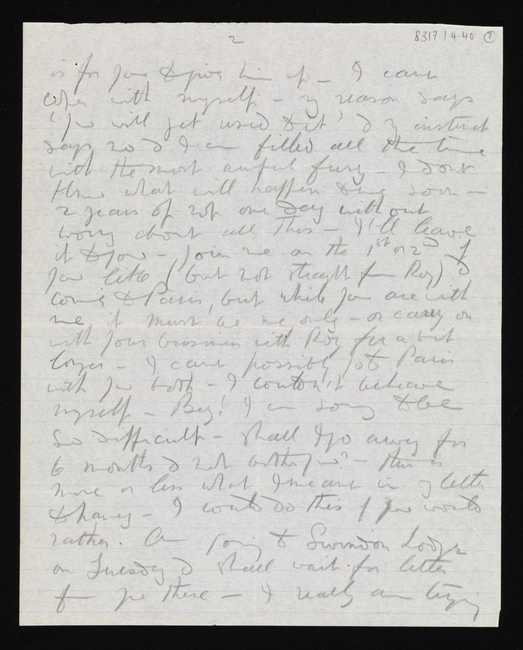 2
8317/1/4/40 1
is for you to give him up – I can't
cope with myself – my reason says
'you will get used to it' & my instinct
says no & I am filled all the time
with the most awful fury – I don't
know what will happen
2 years of not one day without
worry about all this – I'll leave
it to you – Join me on the 1st or 2nd if
you like (but not straight from Roy) &
come to Paris, but while you are with
me it must be me only – or carry on
with your business with Roy for a bit
longer – I can't possibly go to Paris
with you both – I couldn't behave
myself – I am sorry to be
so difficult – Shall I go away for
6 months & not bother you? – this is
more or less what I meant in my letter
to – I could do this if you would
rather. Am going to Swindon Lodge
on Tuesday & shall wait for letter
from you there – I really am trying